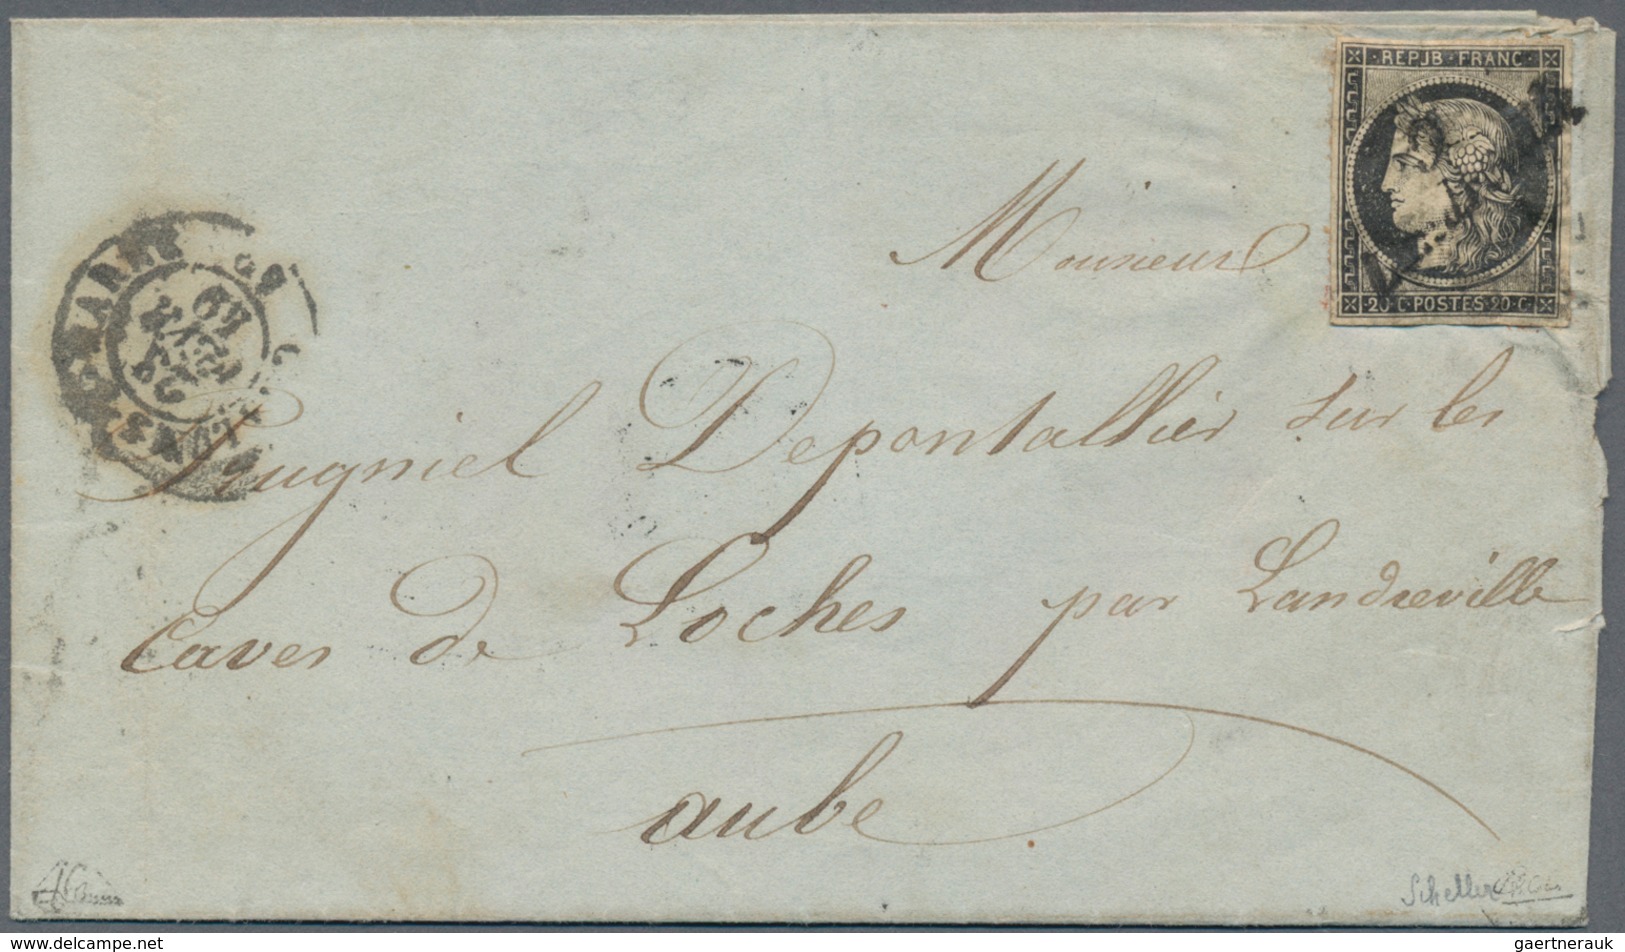 REPUB·FRANC·
20·C·POSTES·20·C·
Monsieur
Pougniel Depontallier sur les
Caves de Loches par Landreville
aube
Scheller
gaertnerauk